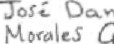 José Dan
Morales